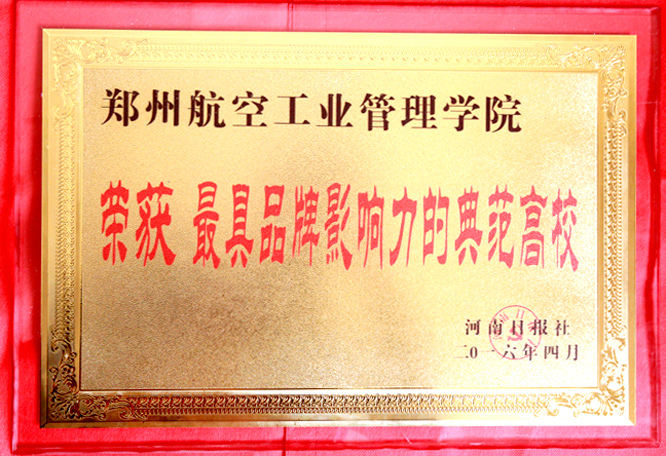 郑州航空工业管理学院
荣获 最具品牌影响力的典范高校
河南日报社
二0一六年四月